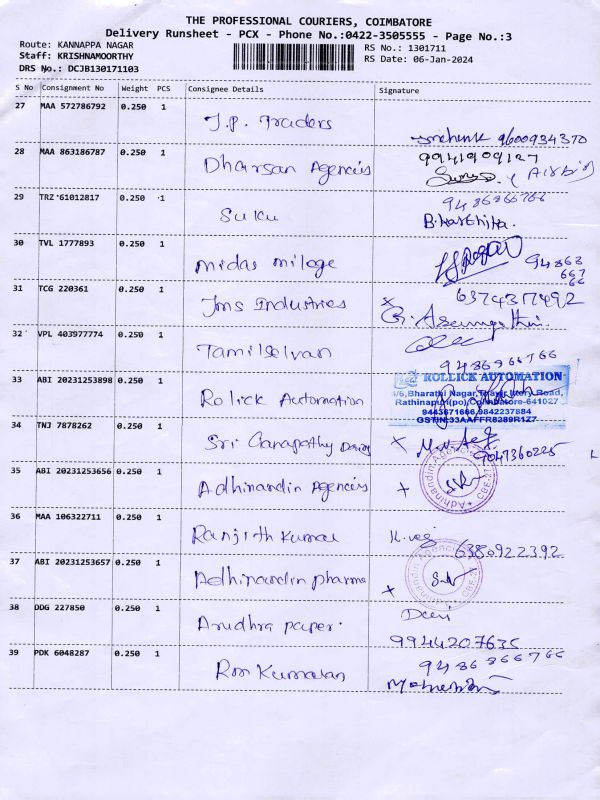 THE PROFESSIONAL COURIERS, COIMBATORE
Delivery Runsheet - PCX - Phone No.:0422-3505555 - Page No.:3
Route: KANNAPPA NAGAR
Staff: KRISHNAMOORTHY
DRS No.: DCJB130171103
RS No.: 1301711
RS Date: 06-Jan-2024
S No Consignment No Weight PCS Consignee Details Signature
27 MAA 572786792 0.250 1 J.P. Traders 9600934370
28 MAA 863186787 0.250 1 Dharsan Agencies 9941909127
29 TRZ 61012817 0.250 1 Suku 9486366766
B.harshika.
30 TVL 1777893 0.250 1 midas milage
31 TCG 220361 0.250 1 Jms Industries 6374317492
32 VPL 403977774 0.250 1 Tamilselvan
9486366766
33 ABI 20231253898 0.250 1 Rolick Automation
ROLLICK AUTOMATION
4/6, Bharathi Nagar, Thayir Ittery Road,
Rathinapuri(po) Coimbatore-641027
9443671666,9842237884
GSTIN:33AAFFR8289R1Z7
34 TNJ 7878262 0.250 1 Sri Ganapathy 9047360225
35 ABI 20231253656 0.250 1 Adhinandin Agencies
Adhinandin Agencies
CBE
36 MAA 106322711 0.250 1 Ranjith Kumar 6380922392
37 ABI 20231253657 0.250 1 Adhinandin pharma
Adhinandin Agencies
CBE
38 DDG 227850 0.250 1 Arudhra paper. Devi
9944207635
39 PDK 6048287 0.250 1 Rm Kumaran 9486366766